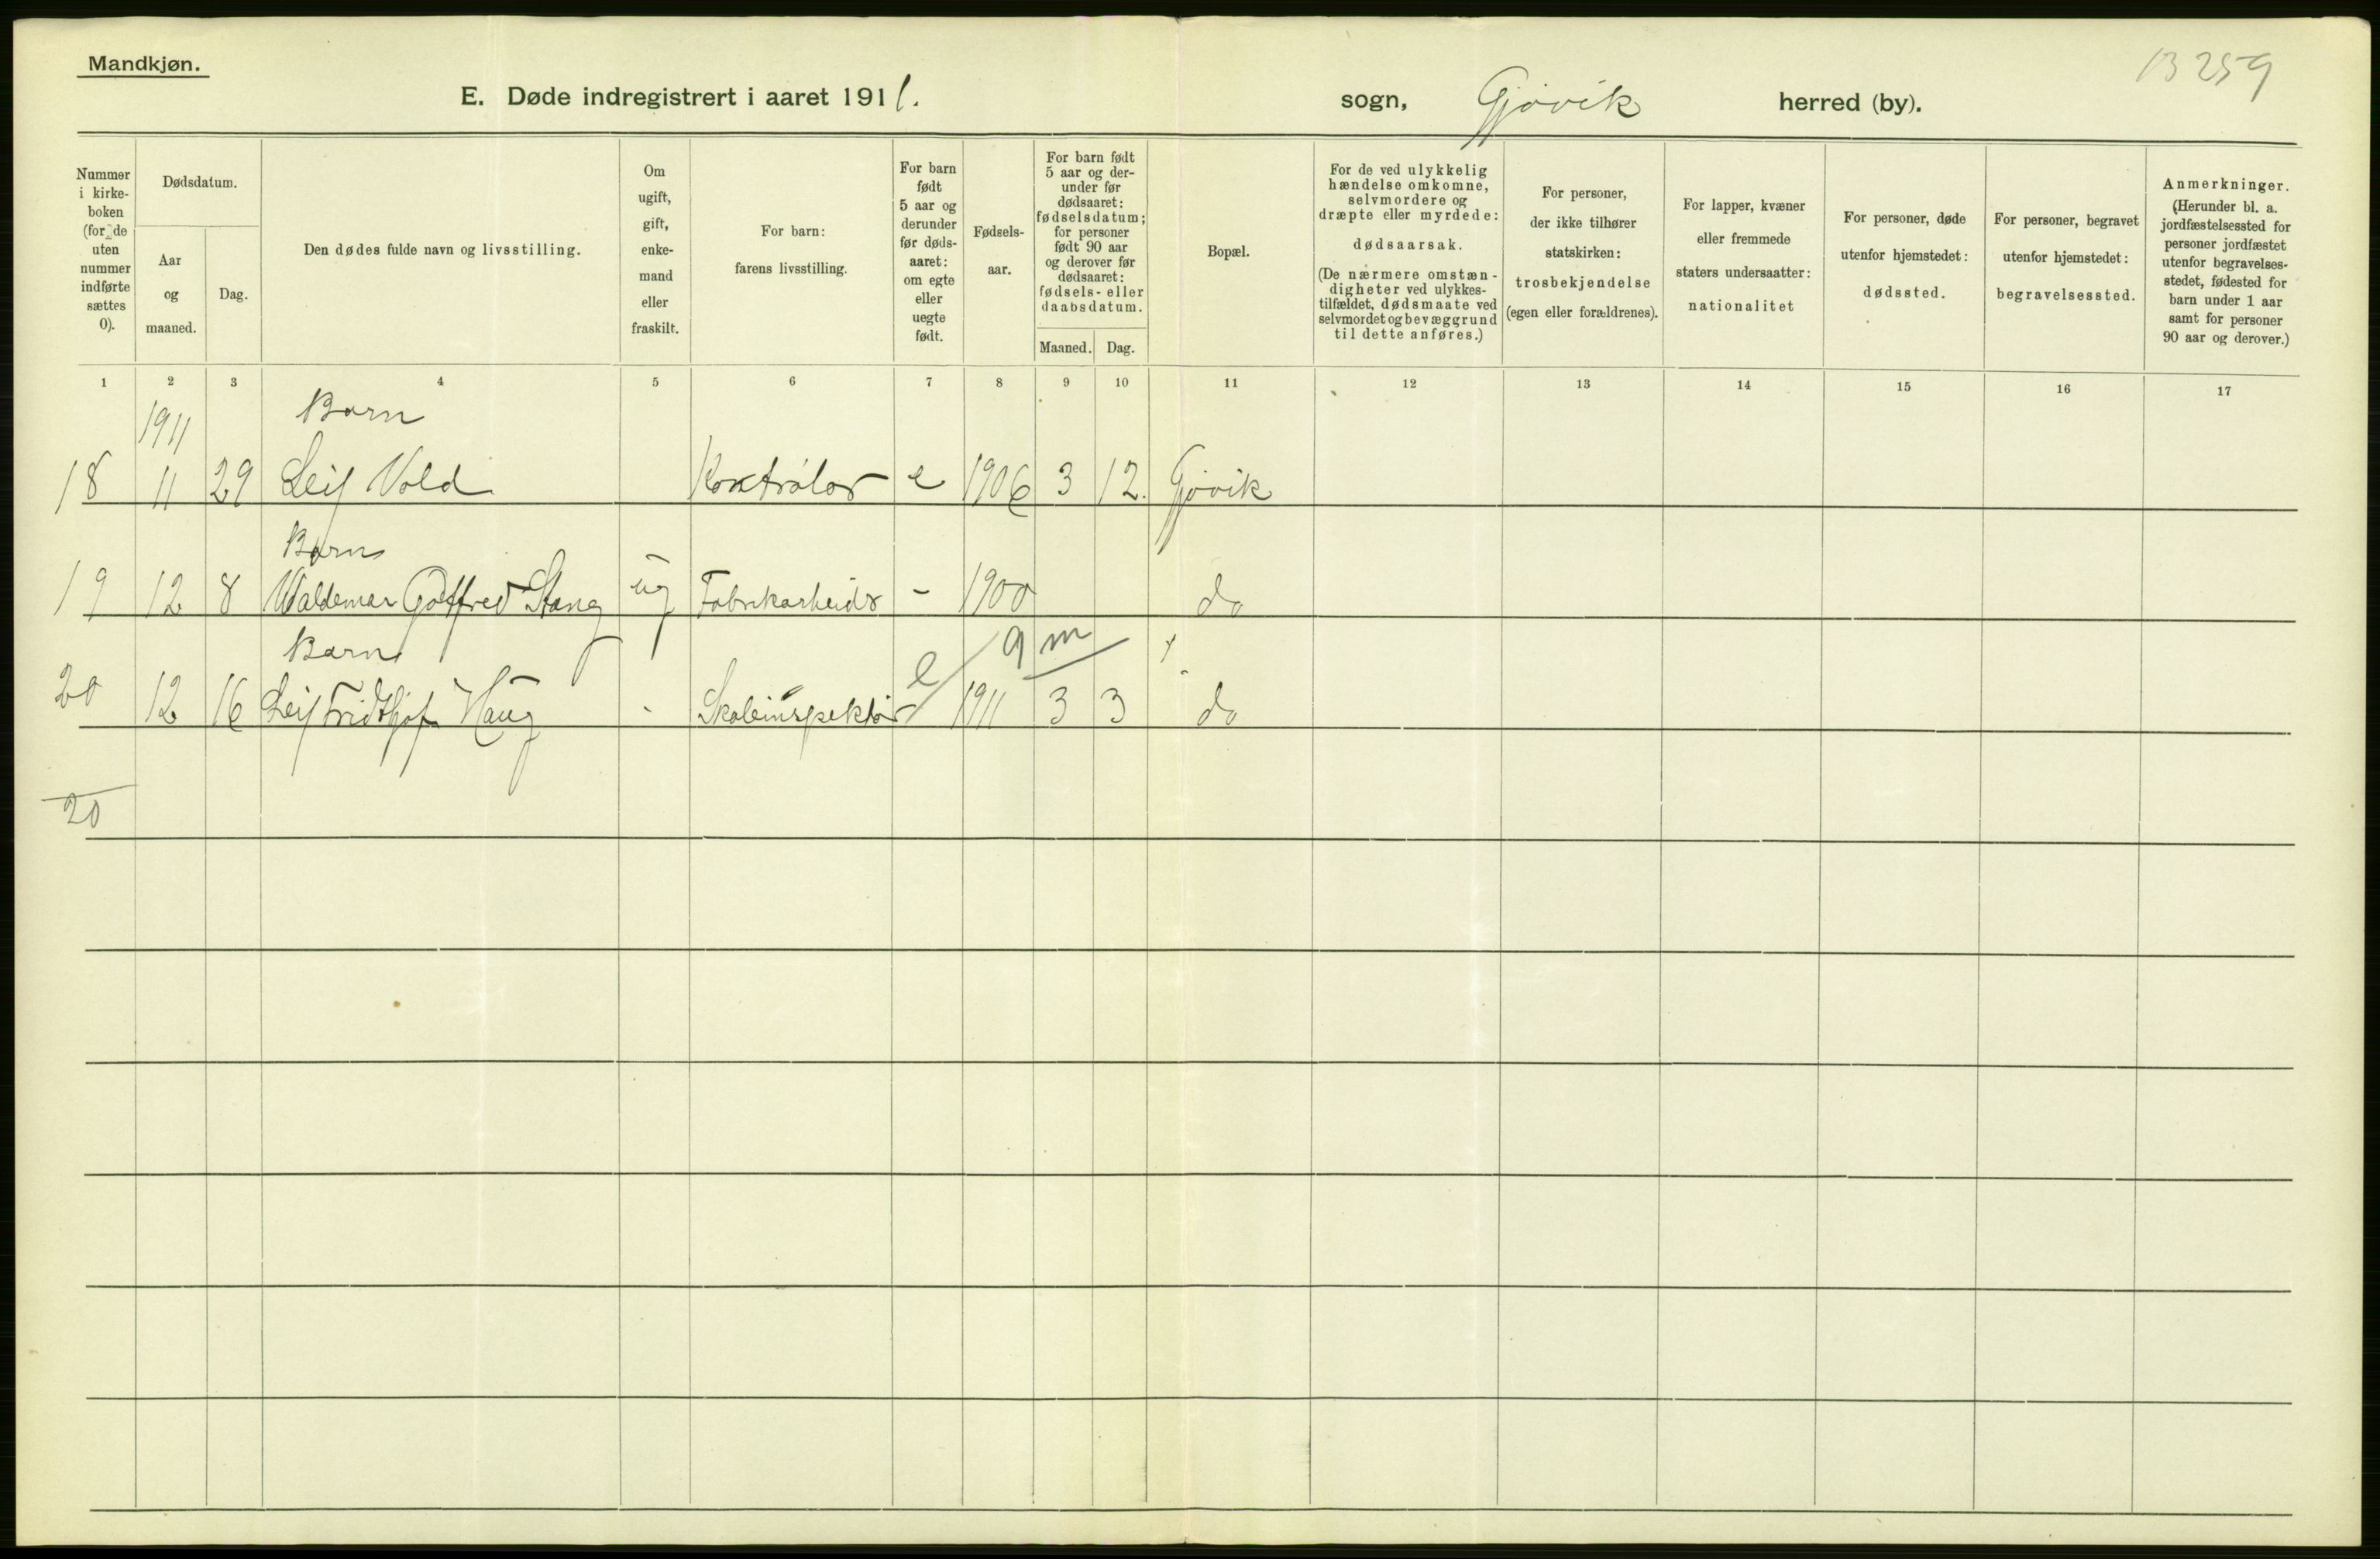 Mandkjøn.
13259
E. Døde indregistrert i aaret 1911. sogn, Gjøvik herred (by).
Nummer i kirke-boken (for de uten nummer indførte sættes 0).
Dødsdatum.
Aar og maaned.
Dag.
Den dødes fulde navn og livsstilling.
Om ugift, gift, enke-mand eller fraskilt.
For barn: farens livsstilling.
For barn født 5 aar og derunder før døds-aaret: om egte eller uegte født.
Fødsels-aar.
For barn født 5 aar og der-under før dødsaaret: fødselsdatum; for personer født 90 aar og derover før dødsaaret: fødsels- eller daabsdatum.
Maaned. Dag.
Bopæl.
For de ved ulykkelig hændelse omkomne, selvmordere og dræpte eller myrdede: dødsaarsak. (De nærmere omstæn-digheter ved ulykkes-tilfældet, dødsmaate ved selvmordet og bevæggrund til dette anføres.)
For personer, der ikke tilhører statskirken: trosbekjendelse (egen eller forældrenes).
For lapper, kvæner eller fremmede staters undersaatter: nationalitet
For personer, døde utenfor hjemstedet: dødssted.
For personer, begravet utenfor hjemstedet: begravelsessted.
Anmerkninger. (Herunder bl. a. jordfæstelsessted for personer jordfæstet utenfor begravelses-stedet, fødested for barn under 1 aar samt for personer 90 aar og derover.)
1 2 3 4 5 6 7 8 9 10 11 12 13 14 15 16 17
1911 Barn
18 11 29 Leif Vold Kontrolør e 1906 3 12. Gjøvik
Barn
19 12 8 Waldemar Gottfred Stang ug Fabrikarbeider - 1900 do
Barn 9 m
20 12 16 Leif Fridthjof Haug - Skoleinspektør e 1911 3 3 do
20